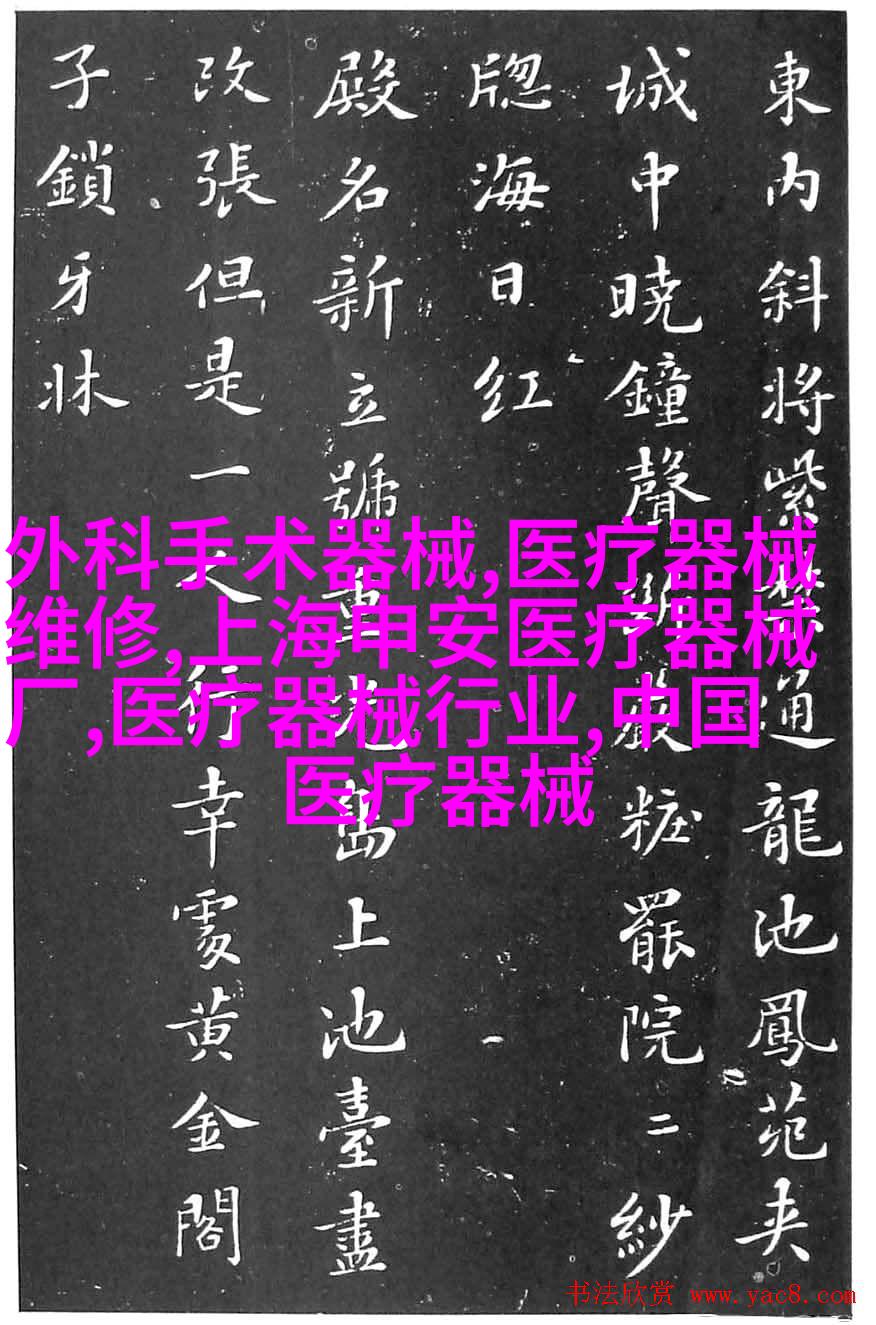 東内斜将紫禁通龍池鳳苑夾
城中曉鐘聲斷嚴粧罷院二紗
牕海日红
殿名新立號重光島上池臺盡
改張但是一人行幸處黄金閣
子鎖牙牀
外科手术器械,医疗器械
维修,上海申安医疗器械
厂,医疗器械行业,中国
医疗器械
书法欣赏 www.yac8.com